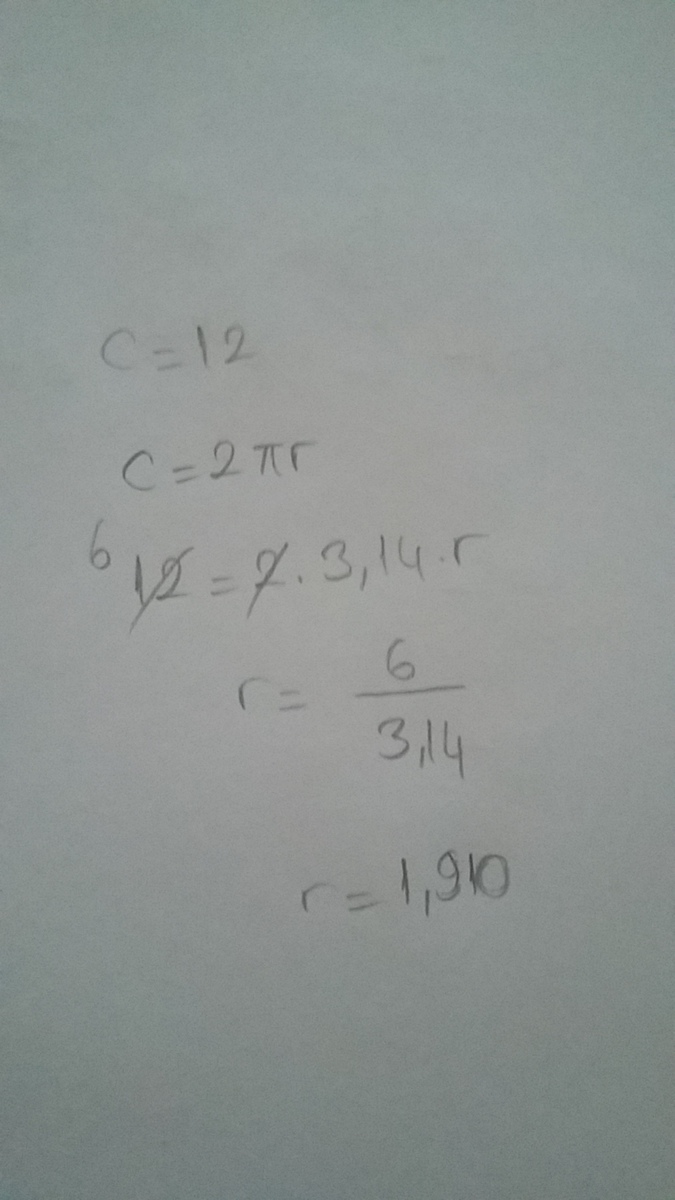 C=12
C=2πr
6 12=2.3,14.r
r= 6
3,14
r=1,910